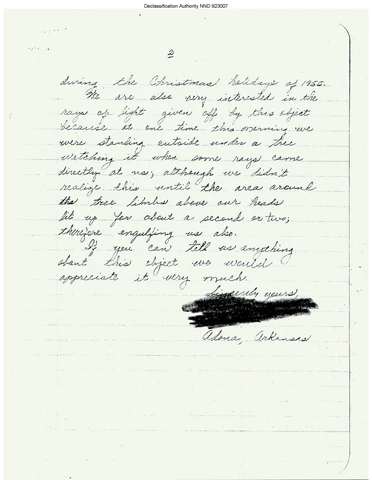 Declassification Authority NND 923007
2
during the Christmas holidays of 1955.
We are also very interested in the
rays of light given off by this object
because at one time this morning we
were standing outside under a tree
watching it when some rays came
directly at us; although we didn't
realize this until the area around
the tree limbs above our heads
lit up for about a second or two;
therefore engulfing us also.
If you can tell us anything
about this object we would
appreciate it very much.
Sincerely yours,
Adona, Arkansas